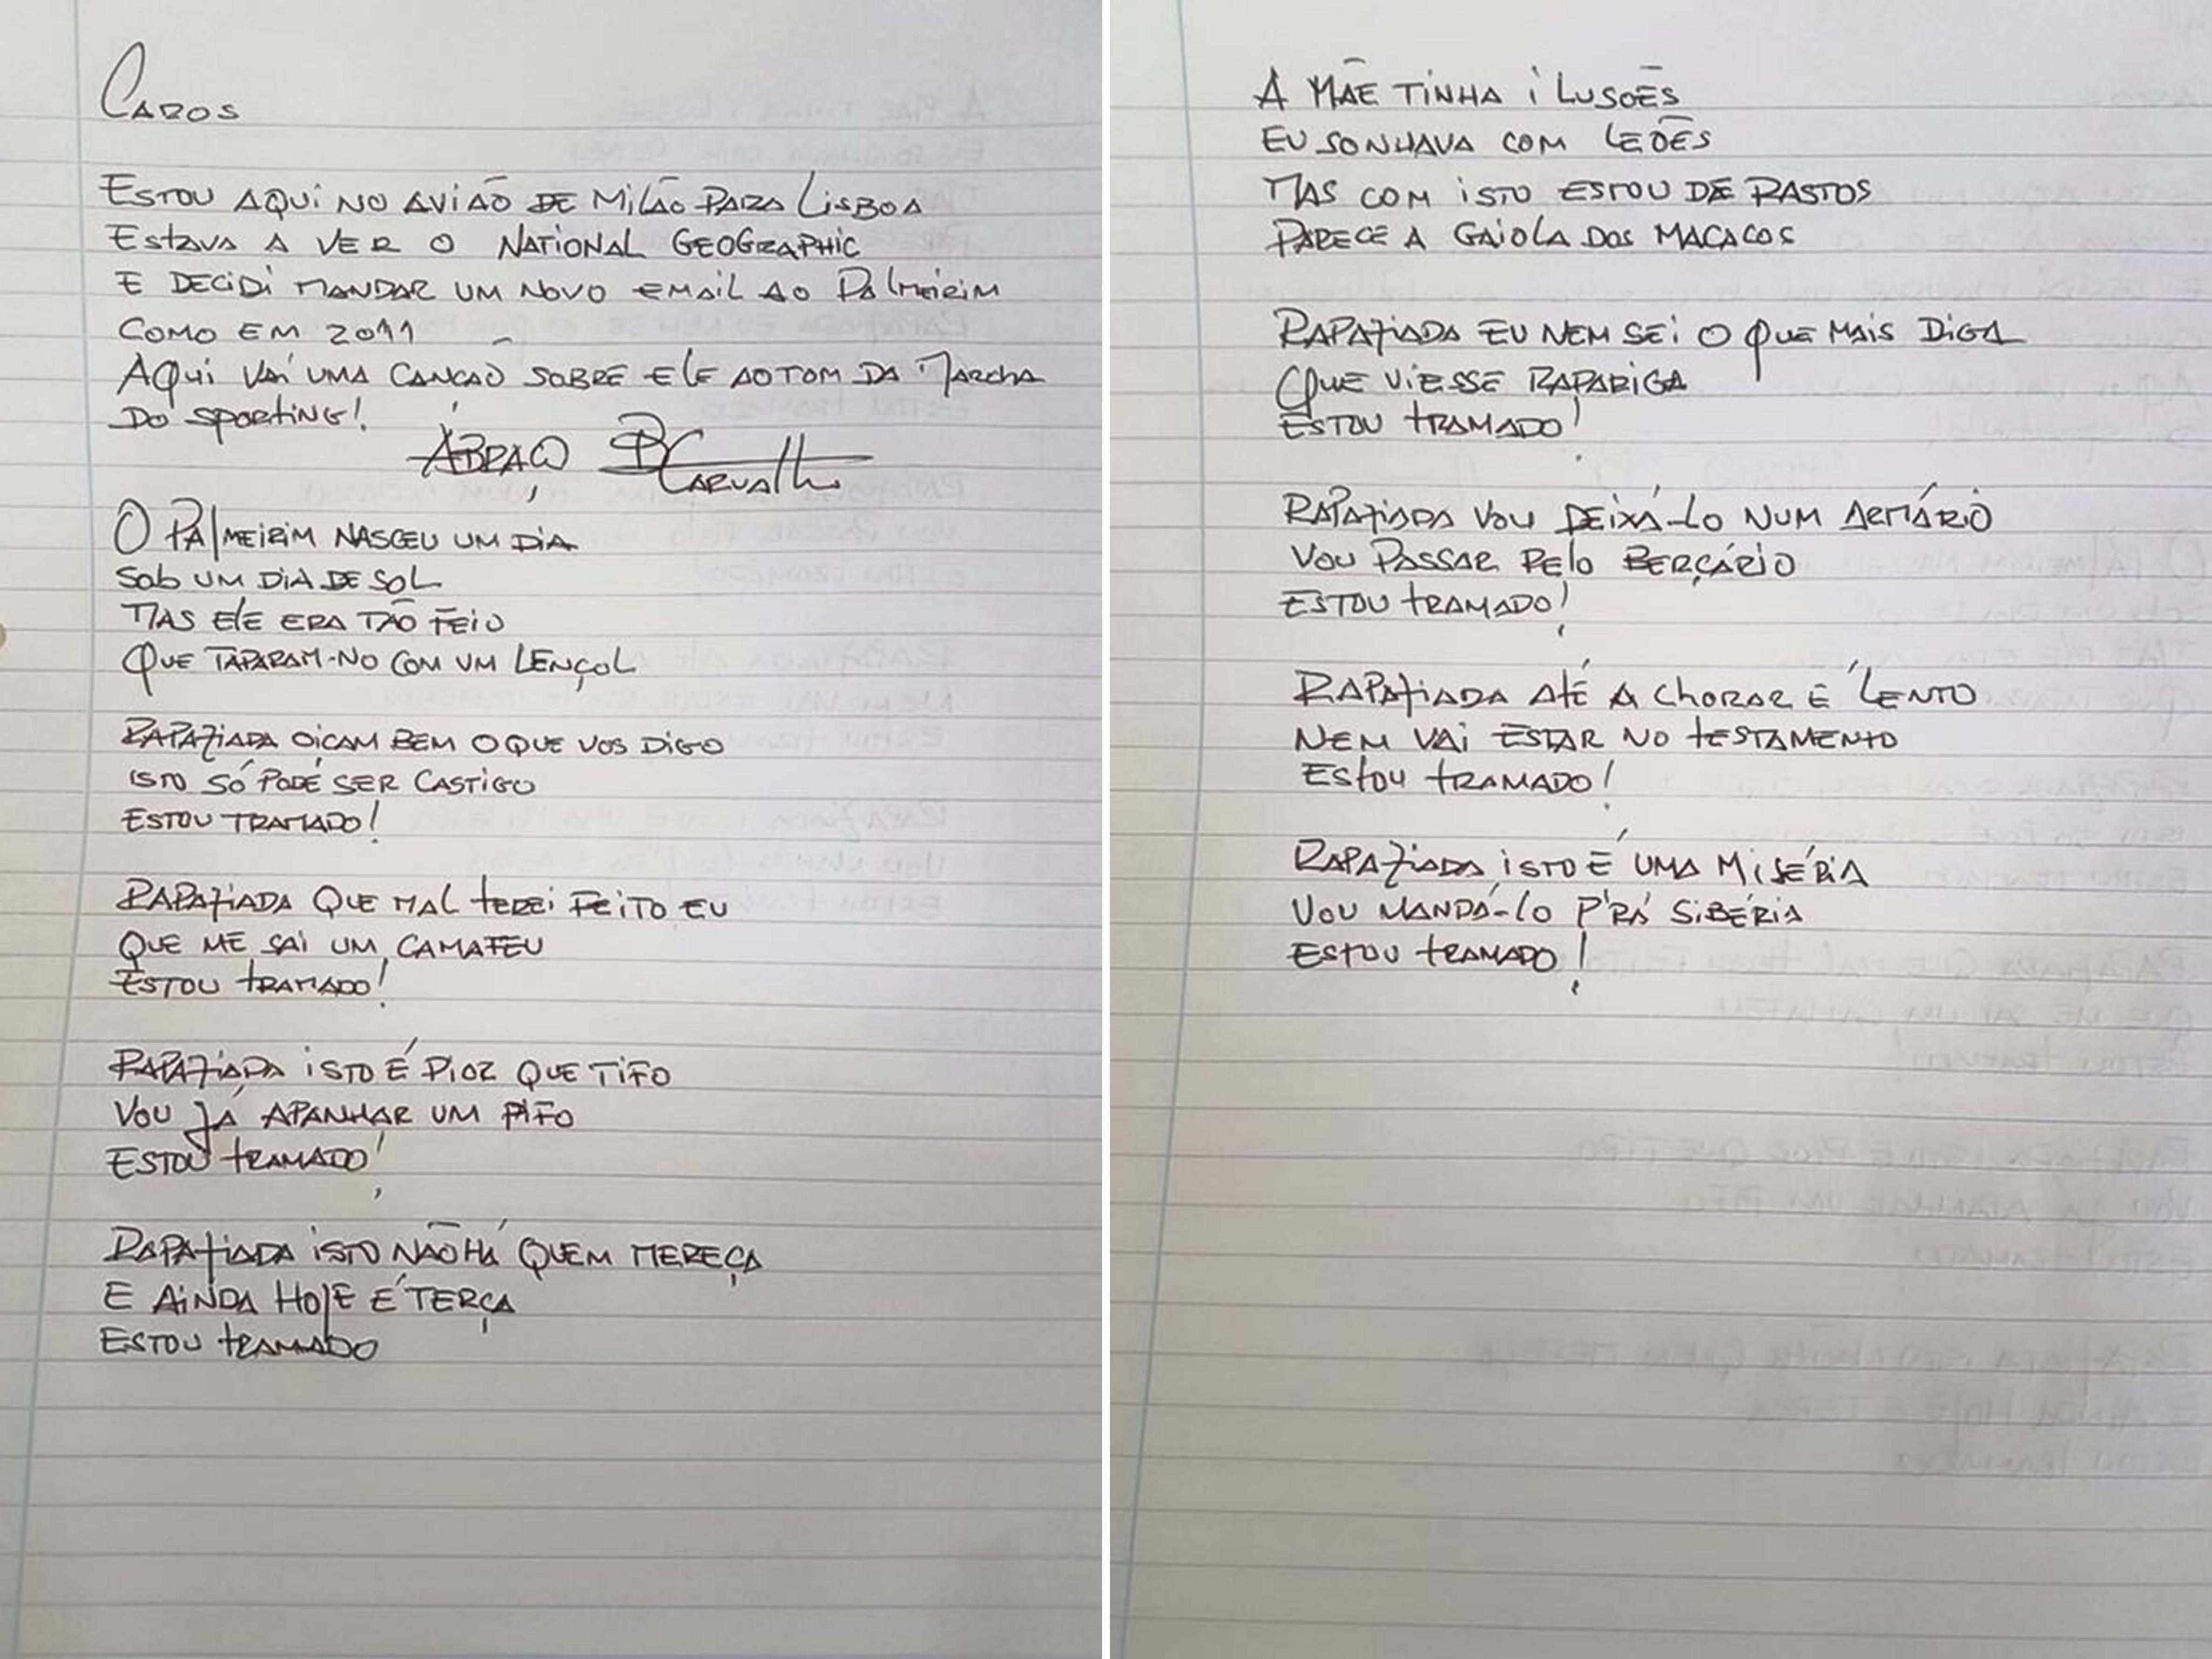 CAROS
ESTOU AQUI NO AVIÃO DE MILÃO PARA LISBOA
ESTAVA A VER O NATIONAL GEOGRAPHIC
E DECIDI MANDAR UM NOVO EMAIL AO PALMEIRIM
COMO EM 2011
AQUI VAI UMA CANCÃO SOBRE ELE AO TOM DA MARCHA
DO SPORTING!
ABRAÇO BCARVALHO
O PALMEIRIM NASCEU UM DIA
SOB UM DIA DE SOL
MAS ELE ERA TÃO FEIO
QUE TAPARAM-NO COM UM LENÇOL
RAPAZIADA OIÇAM BEM O QUE VOS DIGO
ISTO SÓ PODE SER CASTIGO
ESTOU TRAMADO!
RAPAZIADA QUE MAL TEREI FEITO EU
QUE ME SAI UM CAMAFEU
ESTOU TRAMADO!
RAPAZIADA ISTO É PIOR QUE TIFO
VOU JÁ APANHAR UM PIFO
ESTOU TRAMADO!
RAPAZIADA ISTO NÃO HÁ QUEM MEREÇA
E AINDA HOJE É TERÇA
ESTOU TRAMADO
A MÃE TINHA ILUSÕES
EU SONHAVA COM LEÕES
MAS COM ISTO ESTOU DE RASTOS
PARECE A GAIOLA DOS MACACOS
RAPAZIADA EU NEM SEI O QUE MAIS DIGA
QUE VIESSE RAPARIGA
ESTOU TRAMADO!
RAPAZIADA VOU DEIXÁ-LO NUM ARMÁRIO
VOU PASSAR PELO BERÇÁRIO
ESTOU TRAMADO!
RAPAZIADA ATÉ A CHORAR É LENTO
NEM VAI ESTAR NO TESTAMENTO
ESTOU TRAMADO!
RAPAZIADA ISTO É UMA MISÉRIA
VOU MANDÁ-LO P'RÁ SIBÉRIA
ESTOU TRAMADO!